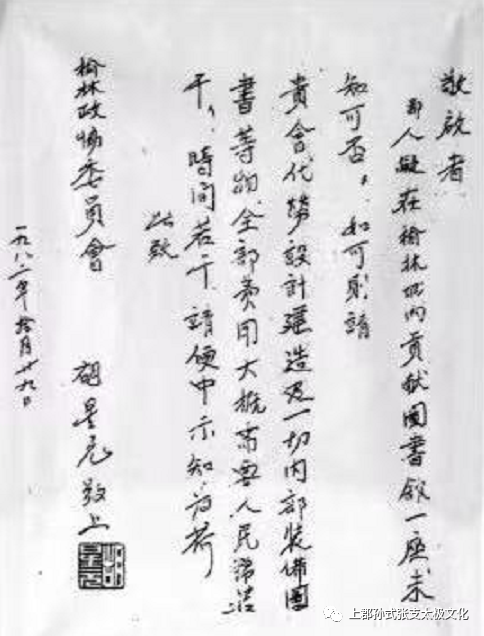 敬啟者
鄙人擬在榆林城内貢献圖書舘一座未
知可否,如可則請
貴會代勞設計建造及一切内部裝備圖
書等物全部費用大概需要人民幣若
干,時间若干請便中示知為荷
此致
榆林政協委員會
胡星元敬上
一九八二年拾月廿九日
上郡孙式张支太极文化